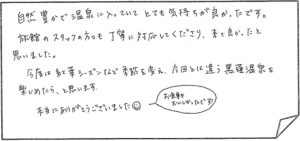 自然豊かで温泉に入っていてとても気持ちが良かったです。
旅館のスタッフの方々も丁寧に対応してくださり、来て良かったと
思いました。
今度は紅葉シーズンなど季節を変え、今回とは違う黒薙温泉を
楽しめたら、と思います。
本当にありがとうございました
お食事も
おいしかったです!